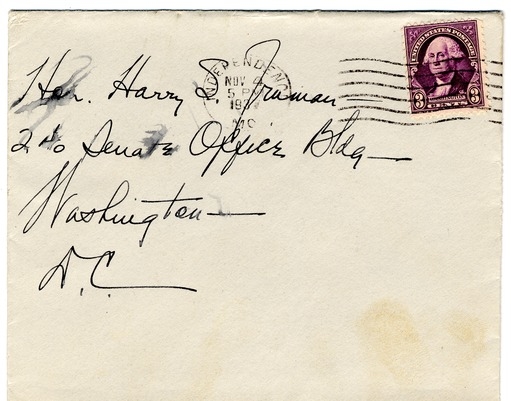 Hon. Harry S. Truman
240 Senate Office Bldg
Washington
D.C.
INDEPENDENCE
NOV 4
5 PM
MO
UNITED STATES POSTAGE
WASHINGTON
3 CENTS 3